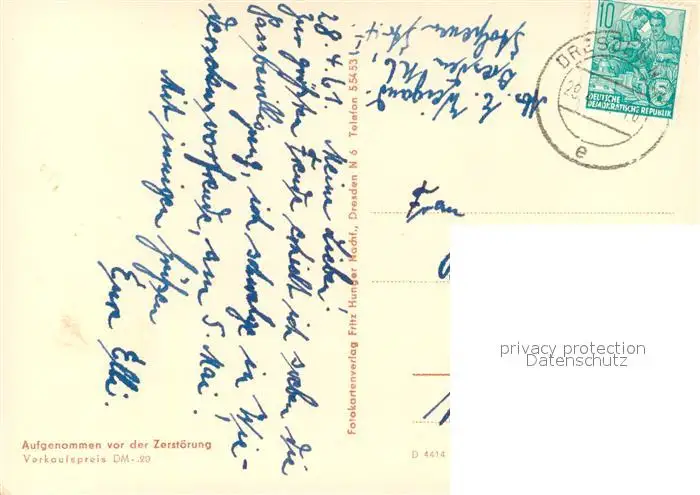 28.4.61.
Meine Lieben!
Zur größten Freude erhielt ich soeben die
Passbewilligung, ich schwelge in Wie-
dersehensvorfreude, am 5. Mai!
Mit innigen Grüßen
Eure Elli.
Abs. E. Wiegand
Dresden N 6,
Fotokartenverlag Fritz Hunger Nachf., Dresden N 6 Telefon 55453
10
DEUTSCHE
DEMOKRATISCHE REPUBLIK
DRESDEN
e
Frau
privacy protection
Datenschutz
Aufgenommen vor der Zerstörung
Verkaufspreis DM -.20
D 4414